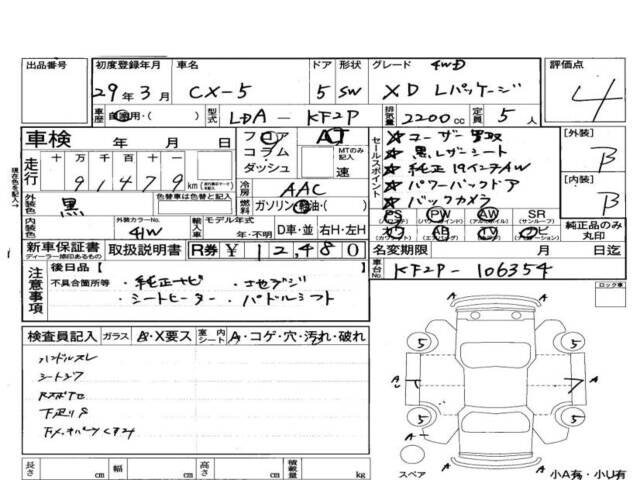 出品番号 初度登録年月 車名 ドア 形状 グレード 4WD 評価点
29年3月 CX-5 5 SW XD Lパッケージ 4
車歴 自家用・( ) 型式 LDA-KF2P 排気量 2200cc 定員 5人
車検 年 月 日 フロア コラム・ダッシュ AT MTのみ記入 速
走行 十 万 千 百 十 9 1 4 7 9 km
セールスポイント
★ユーザー買取
★黒レザーシート
★純正19インチAW
★パワーバックドア
★バックカメラ
[外装] B
[内装] B
外装色 黒 色替車は色替と記入 冷房 AAC
燃料 ガソリン・軽油・( )
PS PW AW SR
(サンルーフ)
TV ナビ
純正品のみ丸印
内装色 外装カラーNo. 41W 輸入車 モデル年式 年・不明 D車・並 右H・左H
新車保証書 ディーラー捺印あるもの 取扱説明書 R券 ¥12,480 名変期限 月 日迄
現在色を記入→
注意事項 後日品[ ]
不具合箇所等
・純正ナビ ・フルセグTV
・シートヒーター ・パドルシフト
車台No. KF2P-106354
ロック車
検査員記入 ガラス A・X要ス 室内シート A・コゲ・穴・汚れ・破れ
ハンドルスレ
シートシワ
5 5
A A
5 5
A A
スペア
小A有・小U有
長さ cm 幅 cm 高さ cm 積載量 kg